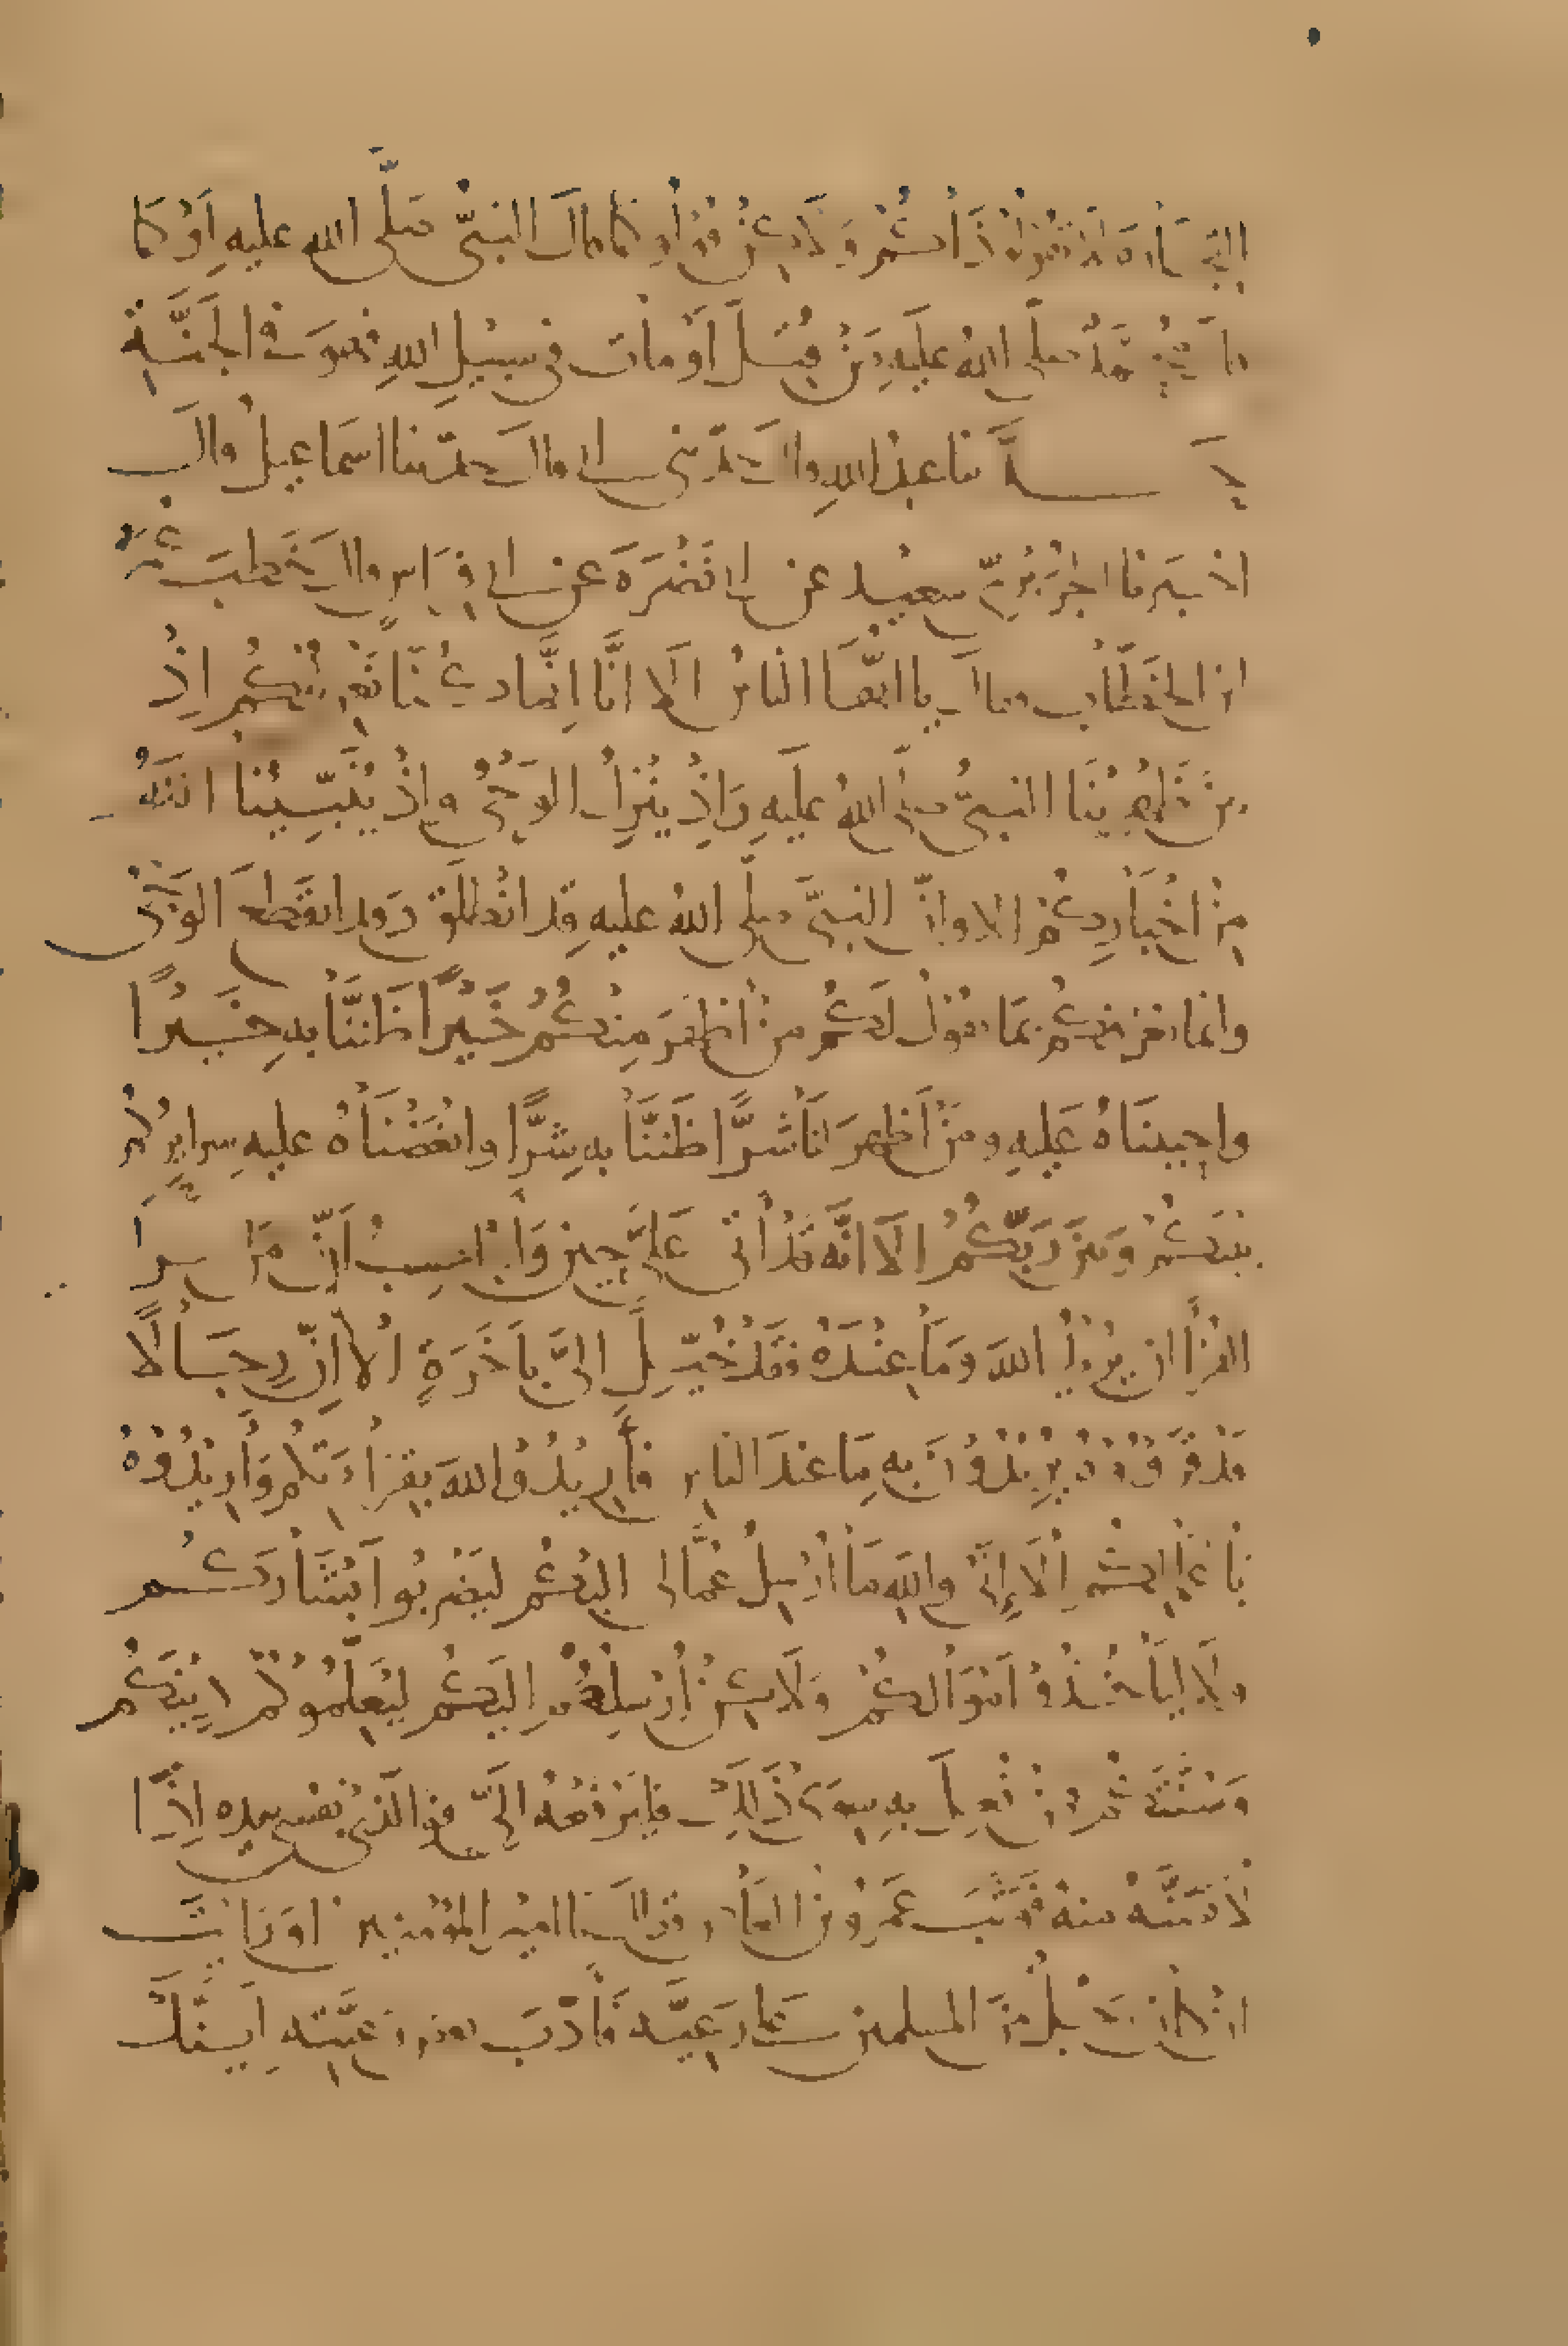 التجارة لا تقولوا ذاكم ولكن قولوا كما قال النبي صلى الله عليه او كما
قال محمد صلى الله عليه من قتل او مات في سبيل الله فهو في الجنة
حدثنا عبد الله قال حدثني ابي قال حدثنا اسماعيل قال
اخبرنا الجريري سعيد عن ابي نضرة عن ابي فراس قال خطب عمر
ابن الخطاب فقال يا ايها الناس الا انا انما كنا نعرفكم اذ
بين ظهرينا النبي صلى الله عليه واذ ينزل الوحي واذ ينبينا الله
من اخباركم الا وان النبي صلى الله عليه قد انطلق وقد انقطع الوحي
وانما نعرفكم بما نقول لكم من اظهر منكم خيرا ظننا به خيرا
واحببناه عليه ومن اظهر لنا شرا ظننا به شرا وابغضناه عليه سرايركم
بينكم وبين ربكم الا انه قد أتى علي حين وانا احسب ان من قرا
القرآن يريد الله وما عنده فقد خيل الي بآخرة الا ان رجالا
قد قرؤوه يريدون به ما عند الناس فأريدوا الله بقراءتكم وأريدوه
باعمالكم الا إني والله ما ارسل عمالي اليكم ليضربوا ابشاركم
ولا ليأخذوا اموالكم ولكن أرسلهم اليكم ليعلموكم دينكم
وسنتكم فمن فعل به سوى ذلك فليرفعه الي فوالذي نفسي بيده اذا
لاقصنه منه فوثب عمرو بن العاص فقال يا امير المؤمنين اورايت
ان كان رجل من المسلمين على رعية فأدب بعض رعيته اينك